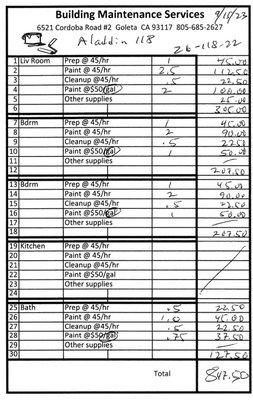 Building Maintenance Services 9/18/23
6521 Cordoba Road #2 Goleta CA 93117 805-685-2627
Aladdin 118
26-118-22
1 Liv Room Prep @ 45/hr 1 45.00
2 Paint @ 45/hr 2.5 112.50
3 Cleanup @45/hr .5 22.50
4 Paint @$50/gal 2 100.00
5 Other supplies 25.00
6 305.00
7 Bdrm Prep @ 45/hr 1 45.00
8 Paint @ 45/hr 2 90.00
9 Cleanup @45/hr .5 2250
10 Paint @$50/gal 1 50.00
11 Other supplies
12 207.50
13 Bdrm Prep @ 45/hr 1 45.00
14 Paint @ 45/hr 2 90.00
15 Cleanup @45/hr .5 22.50
16 Paint @$50/gal 1 50.00
17 Other supplies
18 207.50
19 Kitchen Prep @ 45/hr
20 Paint @ 45/hr
21 Cleanup @45/hr
22 Paint @$50/gal
23 Other supplies
24
25 Bath Prep @ 45/hr .5 22.50
26 Paint @ 45/hr 1.0 45.00
27 Cleanup @45/hr .5 22.50
28 Paint @$50/gal .75 37.50
29 Other supplies
30 127.50
Total 847.50